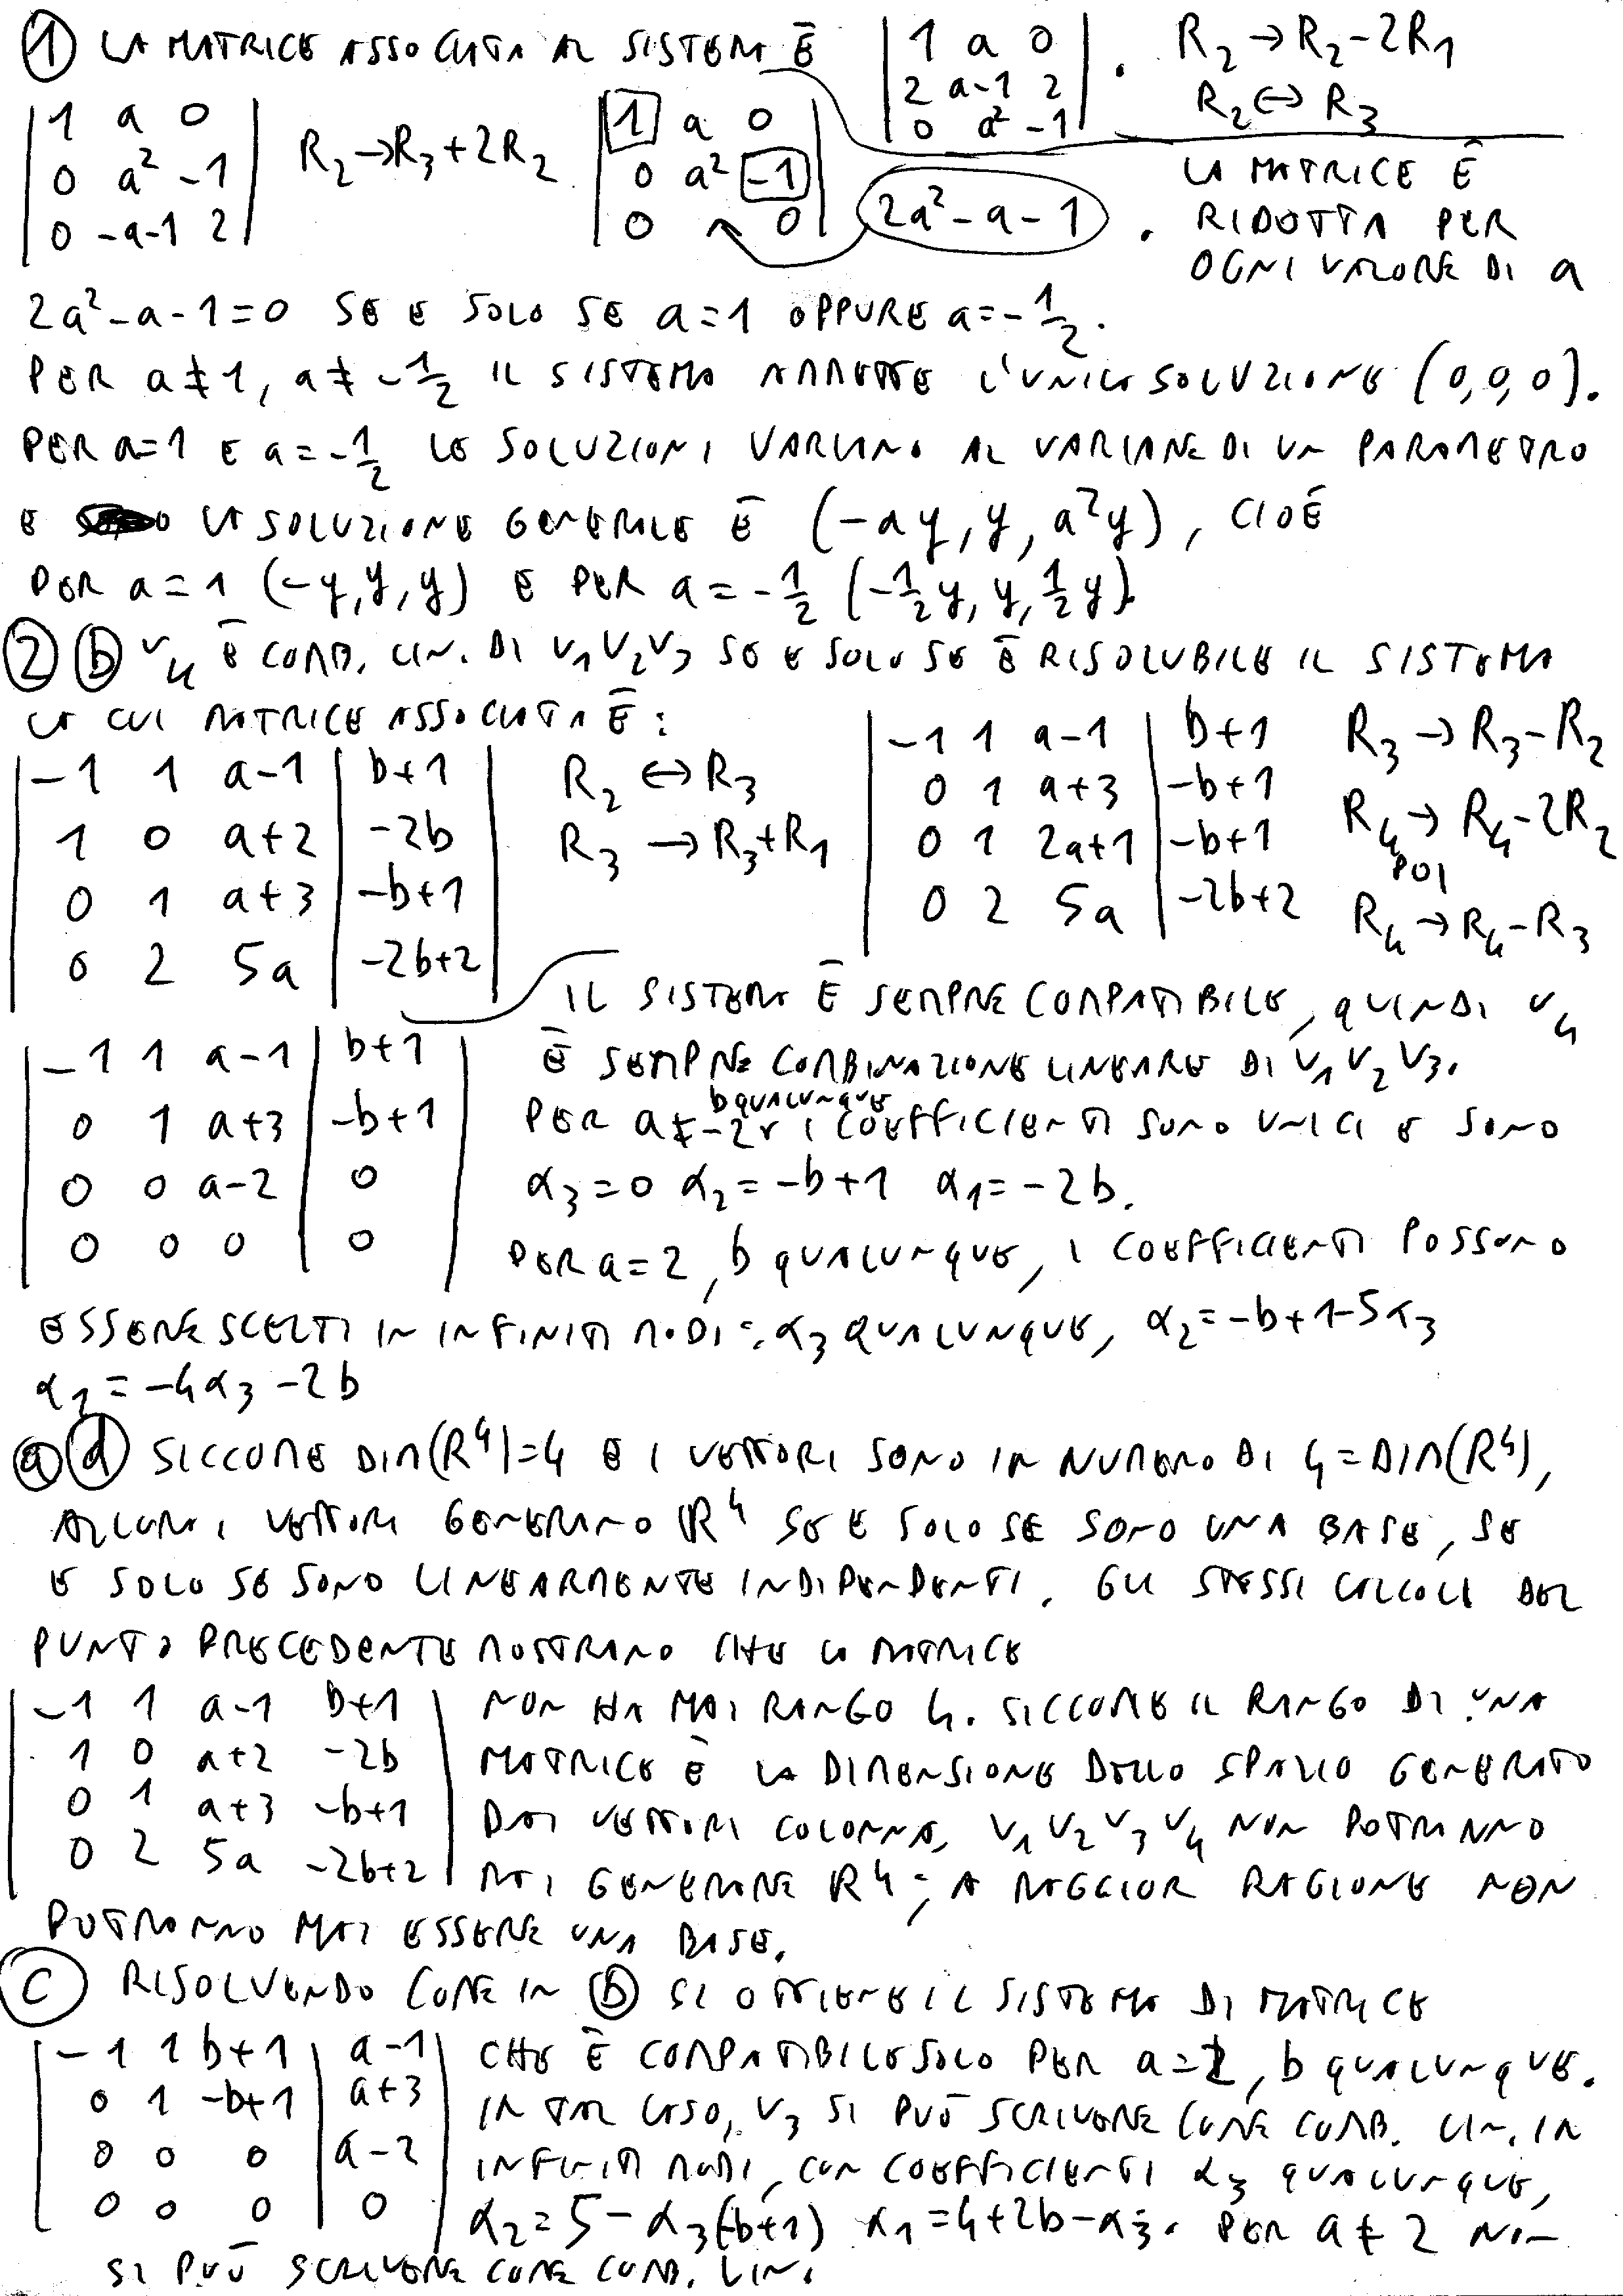 ① LA MATRICE ASSOCIATA AL SISTEMA È |1 a 0| . R₂→R₂-2R₁
|2 a-1 2| R₂↔R₃
|0 a² -1|
|1 a 0| R₂→R₃+2R₂ |1 a 0|
|0 a² -1| |0 a² -1|
|0 -a-1 2| |0 2a²-a-1 0| . LA MATRICE È
RIDOTTA PER
OGNI VALORE DI a
2a²-a-1=0 SE E SOLO SE a=1 OPPURE a=-1/2.
PER a≠1, a≠-1/2 IL SISTEMA AMMETTE L'UNICA SOLUZIONE (0,0,0).
PER a=1 E a=-1/2 LE SOLUZIONI VARIANO AL VARIARE DI UN PARAMETRO
E LA SOLUZIONE GENERALE È (-ay, y, a²y), CIOÈ
PER a=1 (-y,y,y) E PER a=-1/2 (-1/2y, y, 1/2y).
② ⓑ v₄ È COMB. LIN. DI v₁v₂v₃ SE E SOLO SE È RISOLUBILE IL SISTEMA
LA CUI MATRICE ASSOCIATA È:
|-1 1 a-1 | b+1| R₂↔R₃
|1 0 a+2 | -2b| R₃→R₃+R₁
|0 1 a+3 | -b+1|
|0 2 5a | -2b+2|
|-1 1 a-1 | b+1 R₃→R₃-R₂
|0 1 a+3 | -b+1 R₄→R₄-2R₂
|0 1 2a+1 | -b+1 POI
|0 2 5a | -2b+2 R₄→R₄-R₃
|-1 1 a-1 | b+1|
|0 1 a+3 | -b+1|
|0 0 a-2 | 0|
|0 0 0 | 0|
IL SISTEMA È SEMPRE COMPATIBILE, QUINDI v₄
È SEMPRE COMBINAZIONE LINEARE DI v₁v₂v₃.
PER a≠-2, b QUALUNQUE I COEFFICIENTI SONO UNICI E SONO
α₃=0 α₂=-b+1 α₁=-2b.
PER a=2, b QUALUNQUE, I COEFFICIENTI POSSONO
ESSERE SCELTI IN INFINITI MODI: α₃ QUALUNQUE, α₂=-b+1-5α₃
α₁=-4α₃-2b
ⓐⓓ SICCOME DIM(R⁴)=4 E I VETTORI SONO IN NUMERO DI 4=DIM(R⁴),
ALLORA I VETTORI GENERANO R⁴ SE E SOLO SE SONO UNA BASE, SE
E SOLO SE SONO LINEARMENTE INDIPENDENTI. GLI STESSI CALCOLI DEL
PUNTO PRECEDENTE MOSTRANO CHE LA MATRICE
|-1 1 a-1 b+1|
|1 0 a+2 -2b|
|0 1 a+3 -b+1|
|0 2 5a -2b+2|
NON HA MAI RANGO 4. SICCOME IL RANGO DI UNA
MATRICE È LA DIMENSIONE DELLO SPAZIO GENERATO
DAI VETTORI COLONNA, v₁v₂v₃v₄ NON POTRANNO
MAI GENERARE R⁴; A MAGGIOR RAGIONE NON
POTRANNO MAI ESSERE UNA BASE.
ⓒ RISOLVENDO COME IN ⓑ SI OTTIENE IL SISTEMA DI MATRICE
|-1 1 b+1 | a-1|
|0 1 -b+1 | a+3|
|0 0 0 | a-2|
|0 0 0 | 0|
CHE È COMPATIBILE SOLO PER a=2, b QUALUNQUE.
IN TAL CASO, v₃ SI PUÒ SCRIVERE COME COMB. LIN. IN
INFINITI MODI, CON COEFFICIENTI α₃ QUALUNQUE,
α₂=5-α₃(-b+1) α₁=4+2b-α₃. PER a≠2 NON
SI PUÒ SCRIVERE COME COMB. LIN.